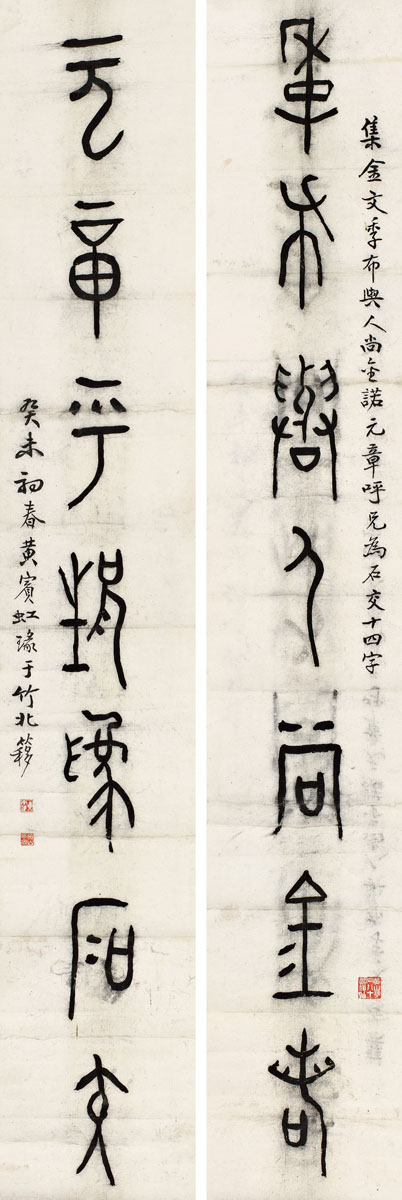 集金文季布與人尚金諾元章呼兄為石交十四字
季布與人尚金諾
元章呼兄為石交
癸未初春黃賓虹篆于竹北簃